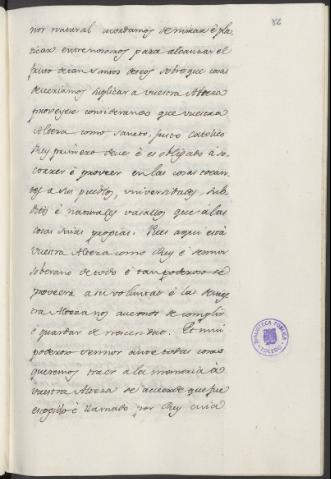 86
nor natural acordamos de mirar è pla
ticar entre nosotros para alcanzar el
fruto de tan santos deseos sobre que cosas
deviamos suplicar a vuestra Alteza
proveyese considerando que vuestra
Alteza como santo, justo catolico
Rey primero deve è es obligado à so
correr è proveer en las cosas tocan
tes a sus pueblos, universidades, sub
ditos è naturales vasallos que a las
cosas suias propias. Pues aqui està
vuestra Alteza como Rey è sennor
soberano de todo è tan poderoso de
proveer a su voluntat è las de
tra Alteza nos avemos de complir
è guardar de necesidad. Et mui
poderoso sennor ante todas cosas
queremos traer a la memoria à
vuestra Alteza se acuerde que fue
escogido è llamado por Rey cuia
BIBLIOTECA PUBLICA
TOLEDO